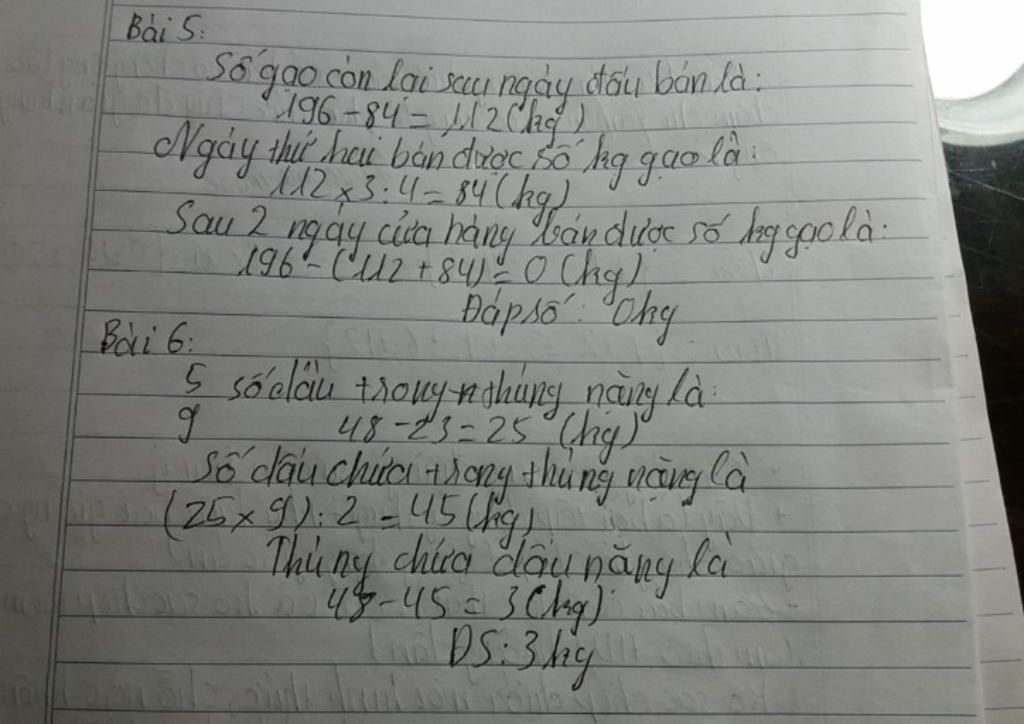 Bài 5:
Số gạo còn lại sau ngày đầu bán là:
196 - 84 = 112 (kg)
Ngày thứ hai bán được số kg gạo là:
112 x 3 : 4 = 84 (kg)
Sau 2 ngày cửa hàng bán được số kg gạo là:
196 - (112 + 84) = 0 (kg)
Đáp số: 0kg
Bài 6:
5/9 số dầu trong thùng nặng là:
48 - 23 = 25 (kg)
Số dầu chứa trong thùng nặng là
(25 x 9) : 2 = 45 (kg)
Thùng chứa dầu nặng là
48 - 45 = 3 (kg)
ĐS: 3 kg